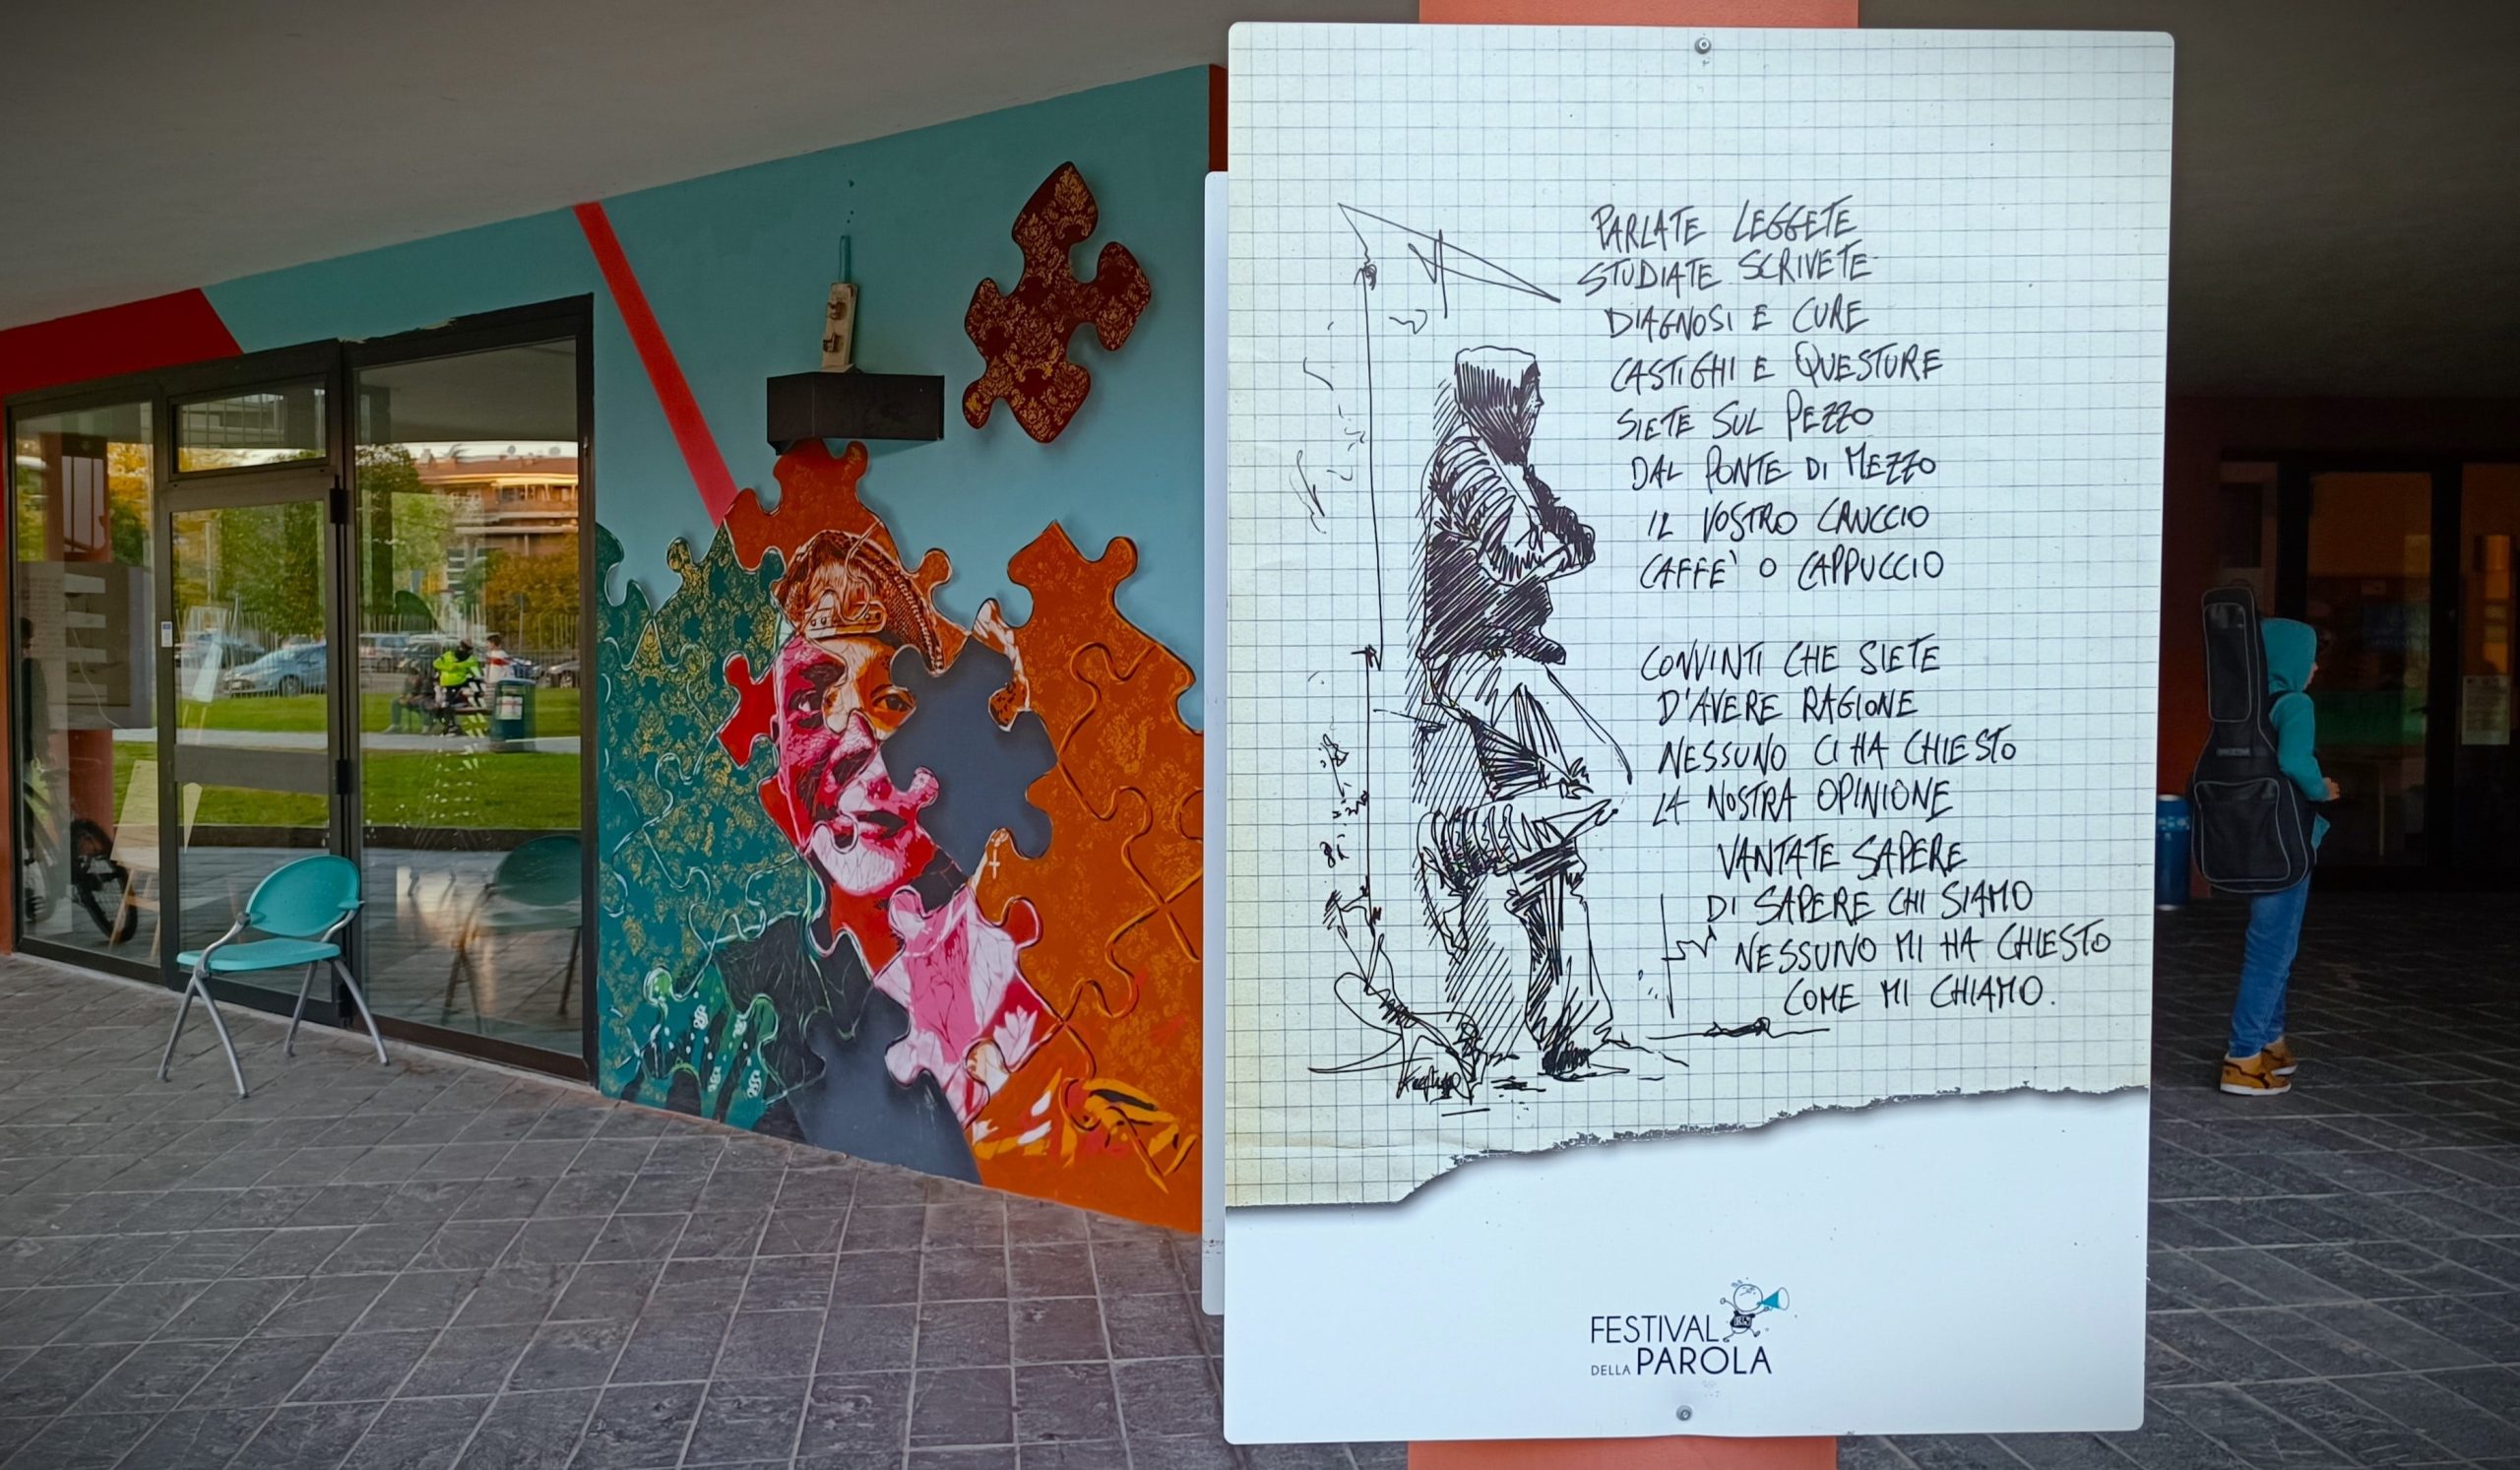 PARLATE LEGGETE
STUDIATE SCRIVETE
DIAGNOSI E CURE
CASTIGHI E QUESTURE
SIETE SUL PEZZO
DAL PONTE DI MEZZO
IL VOSTRO CRUCCIO
CAFFE' O CAPPUCCIO
CONVINTI CHE SIETE
D'AVERE RAGIONE
NESSUNO CI HA CHIESTO
LA NOSTRA OPINIONE
VANTATE SAPERE
DI SAPERE CHI SIAMO
NESSUNO MI HA CHIESTO
COME MI CHIAMO.
FESTIVAL
DELLA PAROLA